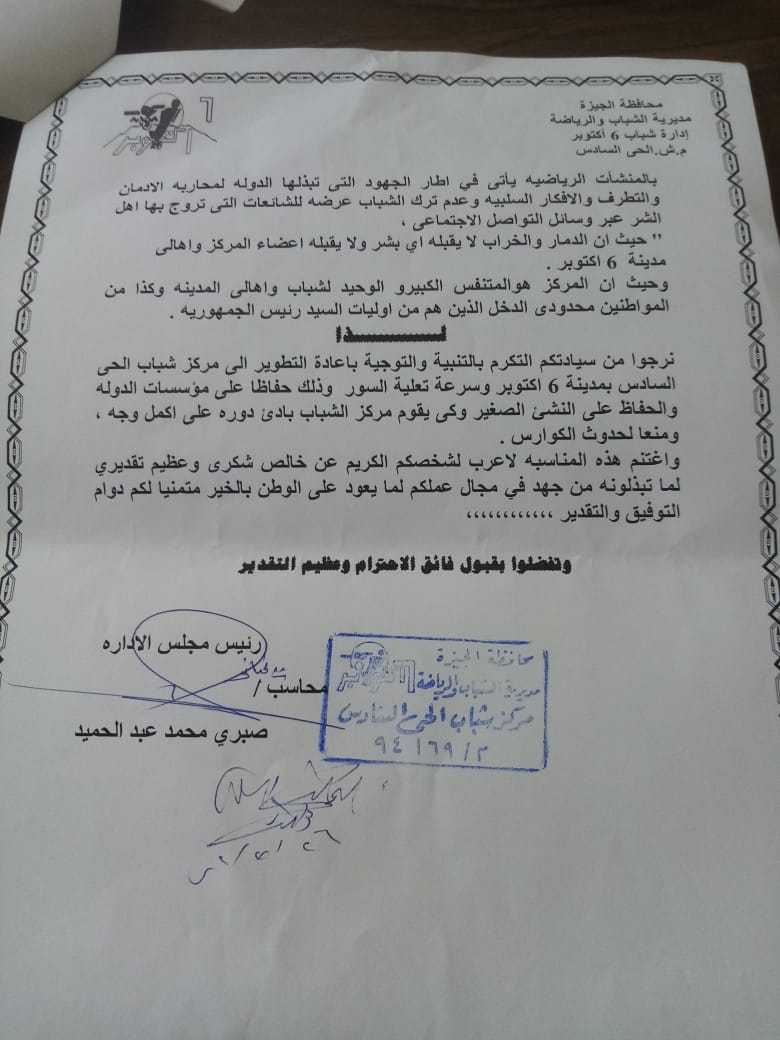 محافظة الجيزة
مديرية الشباب والرياضة
إدارة شباب 6 أكتوبر
م.ش.الحى السادس
٦
أكتوبر
بالمنشأت الرياضيه يأتى في اطار الجهود التى تبذلها الدوله لمحاربه الادمان
والتطرف والافكار السلبيه وعدم ترك الشباب عرضه للشائعات التى تروج بها اهل
الشر عبر وسائل التواصل الاجتماعى ،
" حيث ان الدمار والخراب لا يقبله اي بشر ولا يقبله اعضاء المركز واهالى
مدينة 6 اكتوبر .
وحيث ان المركز هوالمتنفس الكبيرو الوحيد لشباب واهالى المدينه وكذا من
المواطنين محدودى الدخل الذين هم من اوليات السيد رئيس الجمهوريه .
لـــــــــــذا
نرجوا من سيادتكم التكرم بالتنبية والتوجية باعادة التطوير الى مركز شباب الحى
السادس بمدينة 6 اكتوبر وسرعة تعلية السور وذلك حفاظا على مؤسسات الدوله
والحفاظ على النشئ الصغير وكى يقوم مركز الشباب بادئ دوره على اكمل وجه ،
ومنعا لحدوث الكوارس .
واغتنم هذه المناسبه لاعرب لشخصكم الكريم عن خالص شكرى وعظيم تقديري
لما تبذلونه من جهد في مجال عملكم لما يعود على الوطن بالخير متمنيا لكم دوام
التوفيق والتقدير ،،،،،،،،،،،،
وتفضلوا بقبول فائق الاحترام وعظيم التقدير
رئيس مجلس الاداره
محاسب /
صبري محمد عبد الحميد
محافظة الجيزة
مديرية الشباب والرياضة
مركز شباب الحى السادس
٩٤ / ٦٩ / ٢